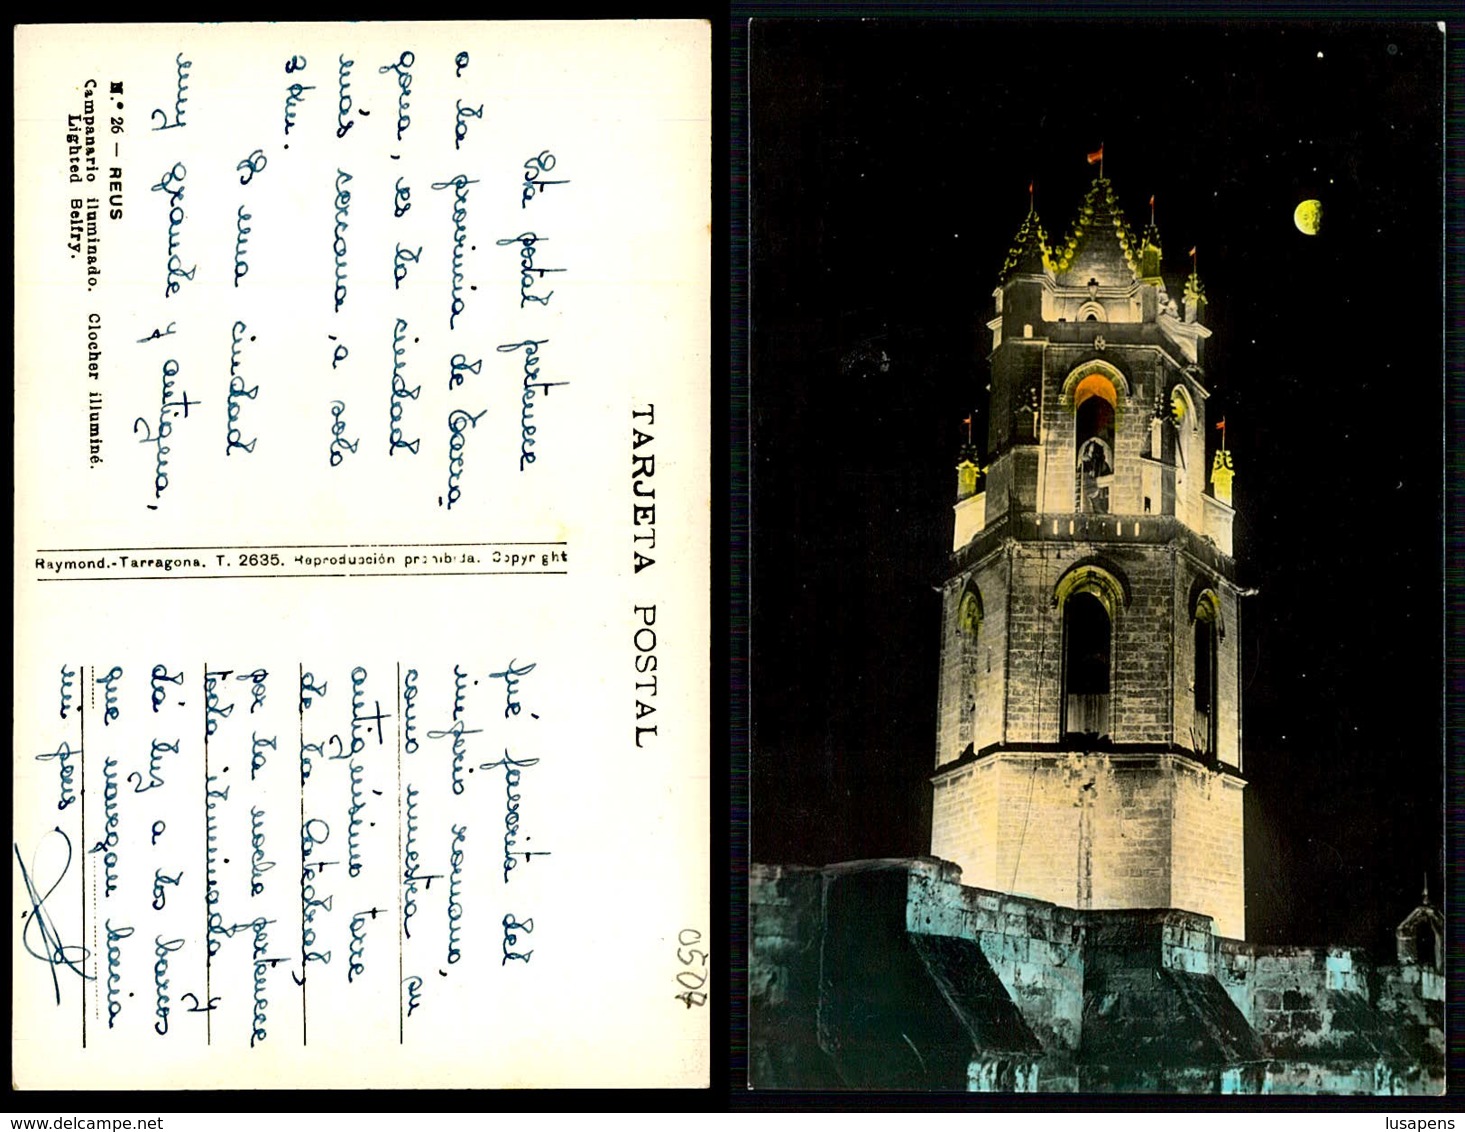 TARJETA POSTAL
Esta postal pertenece
a la provincia de Tarra-
gona, es la ciudad
más cercana, a solo
3 Km.
Es una ciudad
muy grande y antigena,
N.º 26 — REUS
Campanario iluminado. Clocher illuminé.
Lighted Belfry.
Raymond.-Tarragona. T. 2635. Reproducción prohibida. Copyright
fué favorita del
inperio romano,
como muestra su
antigüisimo torre
de la Catedral,
por la noche pertenece
toda iluminada y
dá luz a los barcos
que navegan hacia
mi pais.
0507
hippostcard.com
lusapens